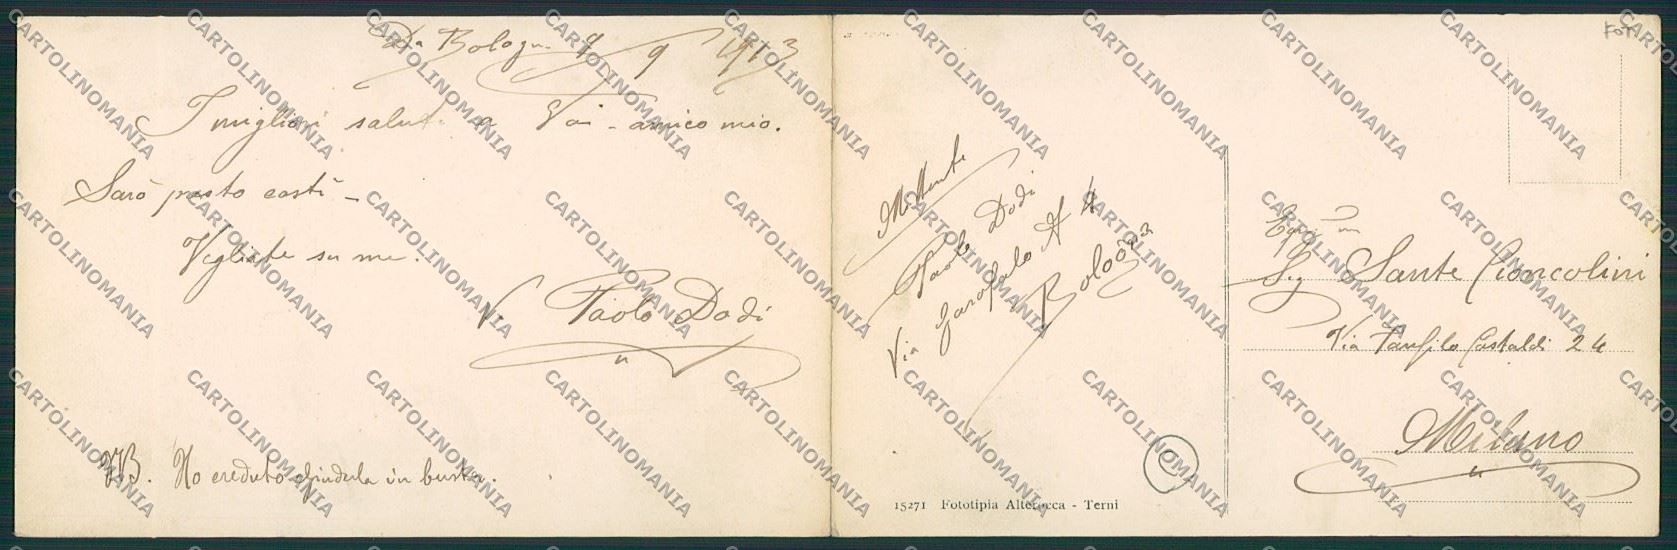 Da Bologna 9 9 1913
I migliori saluti a Voi - amico mio.
Sarò presto costì -
Vogliate su me.
V. Paolo Dodi
NB. Ho creduto chiuderla in busta.
Mittente
Paolo Dodi
Via Garofalo N 4
Bologna
15271 Fototipia Alterocca - Terni
Egr.
Sig Sante Cioncolini
Via Panfilo Castaldi 24
Milano
CARTOLINOMANIA